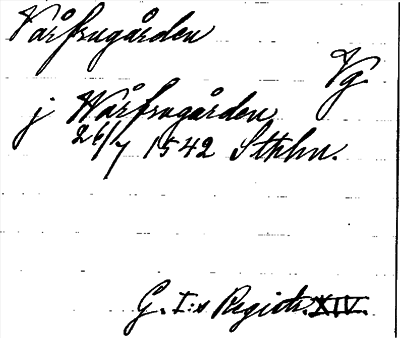 Vårfrugården
Vg.
j Wårfrugården
26/7 1542 Sthlm.
G. I:s Registr. XIV.